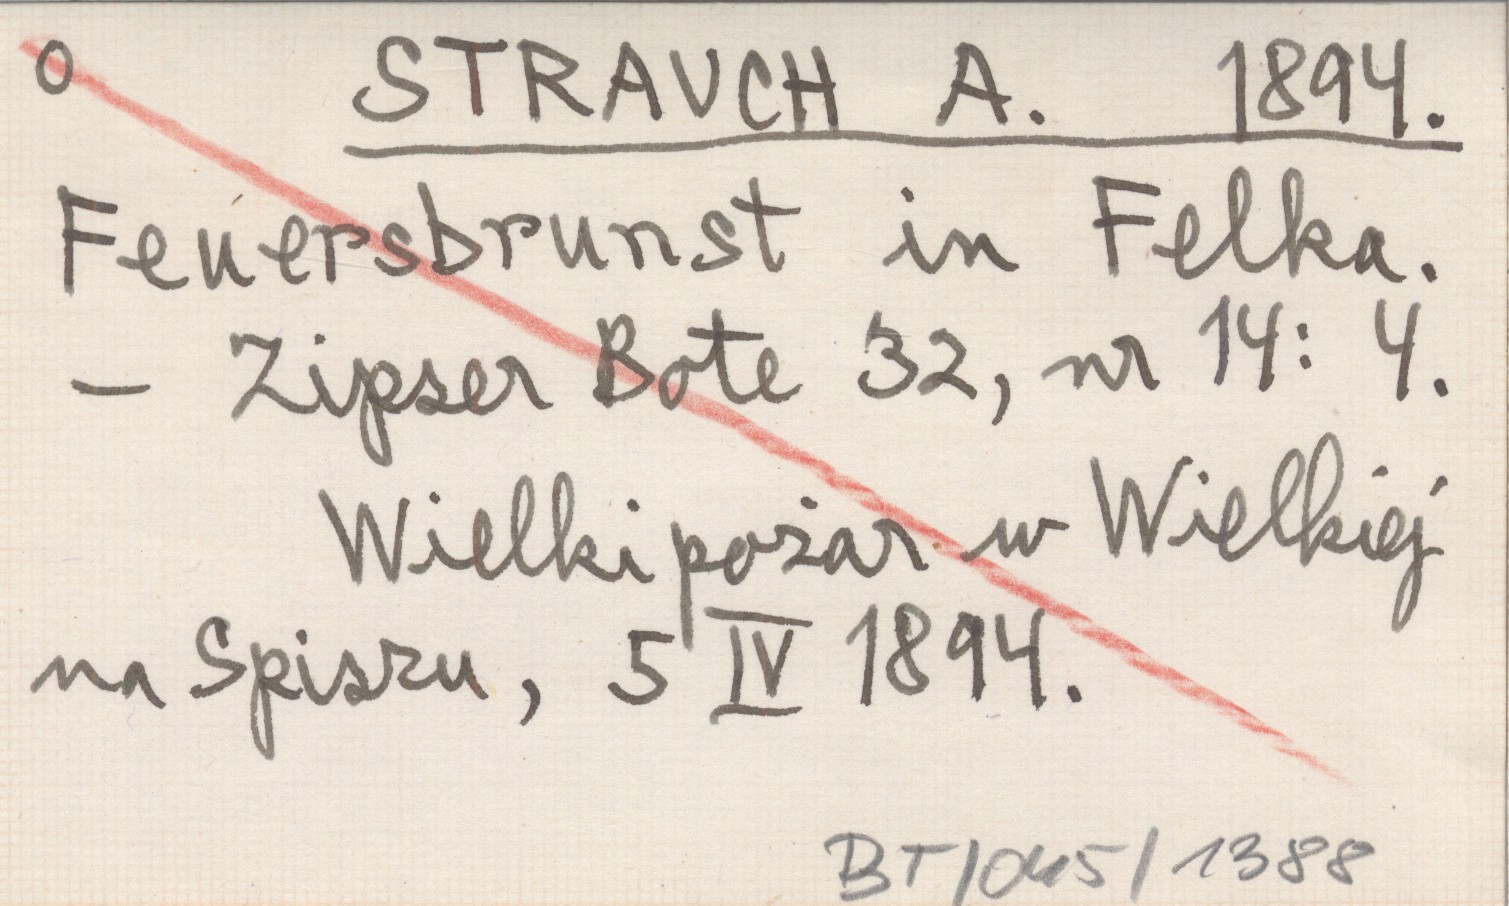 o STRAUCH A. 1894.
Feuersbrunst in Felka.
– Zipser Bote 32, nr 14: 4.
Wielki pożar w Wielkiej
na Spiszu, 5 IV 1894.
BT/045/1388